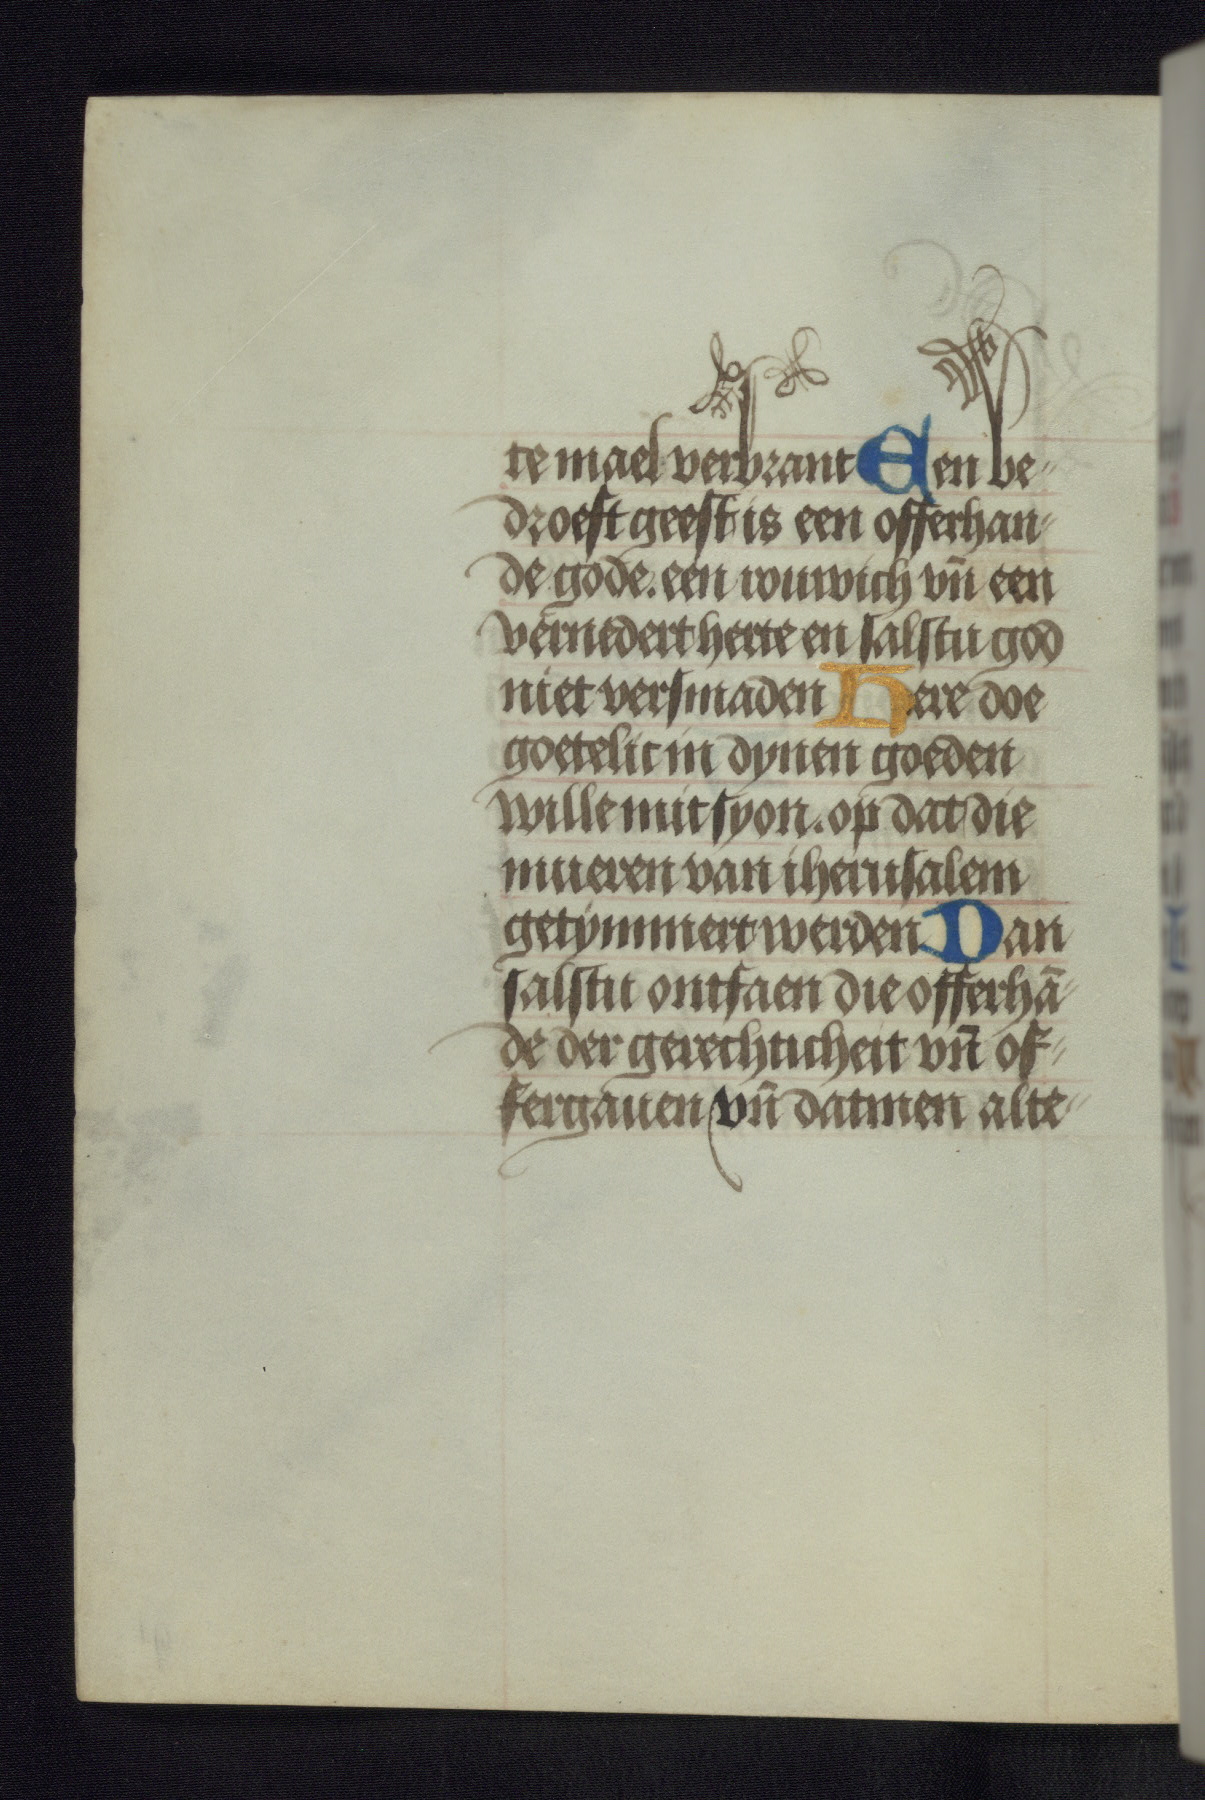 te mael verbrant Een be-
droeft geest is een offerhan-
de gode. een rouwich vn̄ een
vernedert herte en salstu god
niet versmaden Here doe
goetelic in dynen goeden
wille mit syon. op dat die
mueren van iherusalem
getymmert werden Dan
salstu ontfaen die offerhā-
de der gerechticheit vn̄ of-
fergauen vn̄ datmen alte-